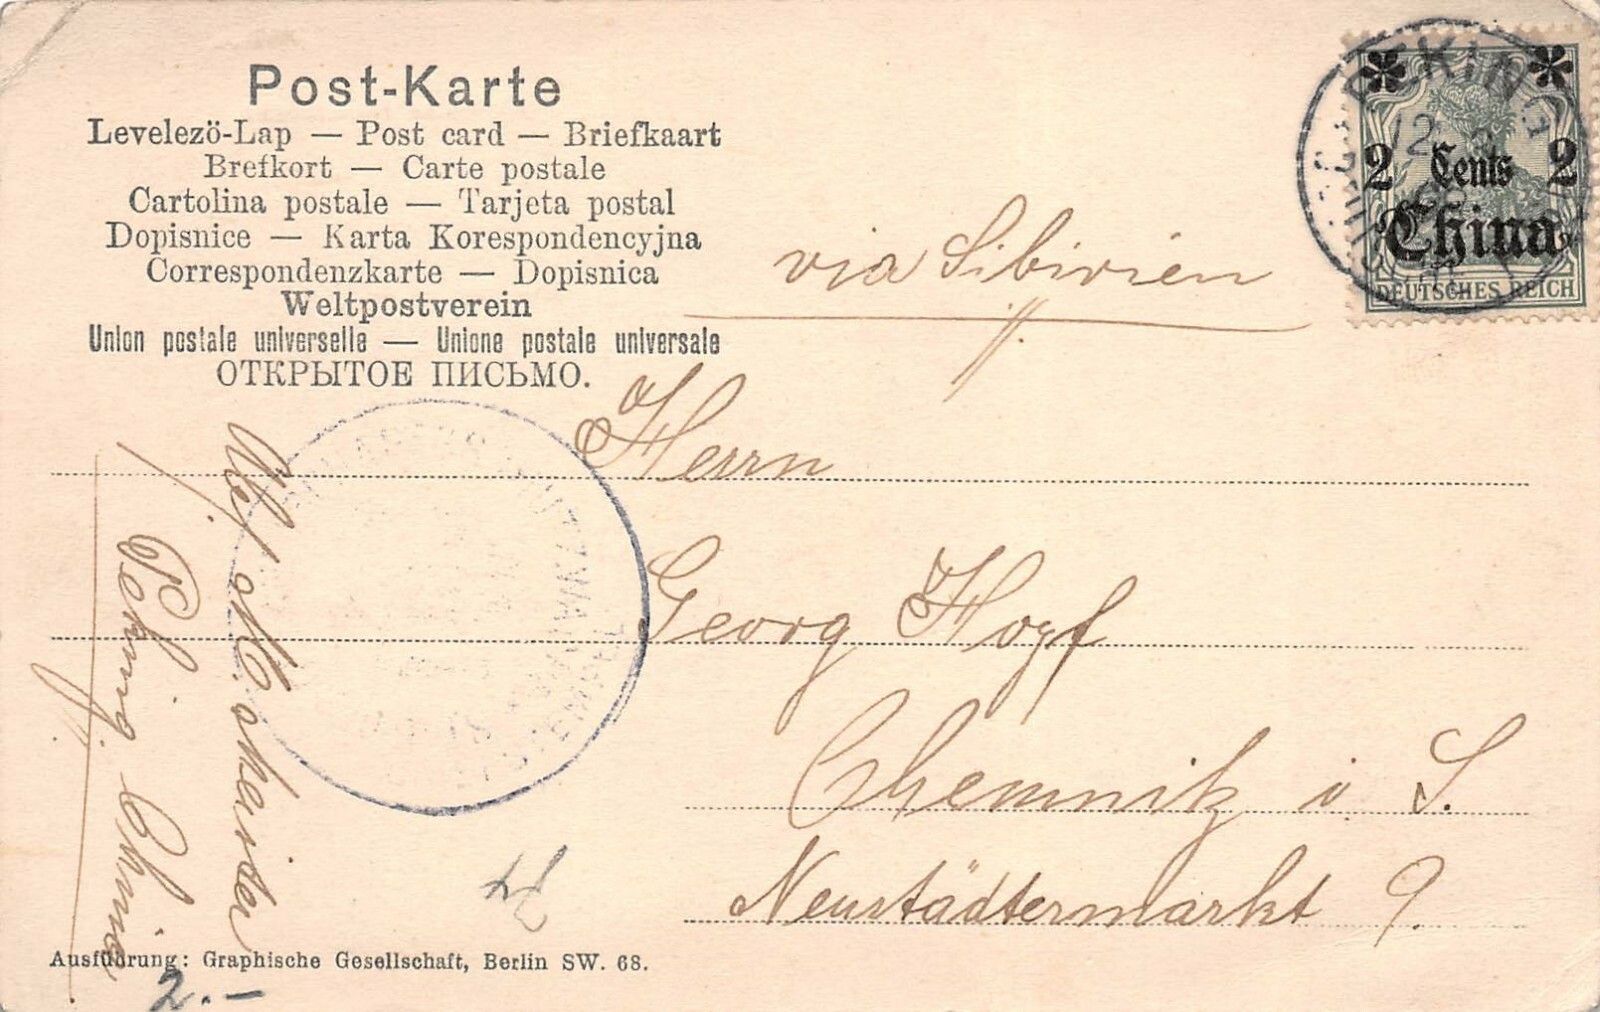 Post-Karte
Levelezö-Lap — Post card — Briefkaart
Brefkort — Carte postale
Cartolina postale — Tarjeta postal
Dopisnice — Karta Korespondencyjna
Correspondenzkarte — Dopisnica
Weltpostverein
Union postale universelle — Unione postale universale
ОТКРЫТОЕ ПИСЬМО.
PEKING
12
2 Cents 2
China
DEUTSCHES REICH
via Sibirien
Herrn
Georg Hopf
Chemnitz i. S.
Neustädtermarkt 9.
Peking. China
Ausführung: Graphische Gesellschaft, Berlin SW. 68.
2.-